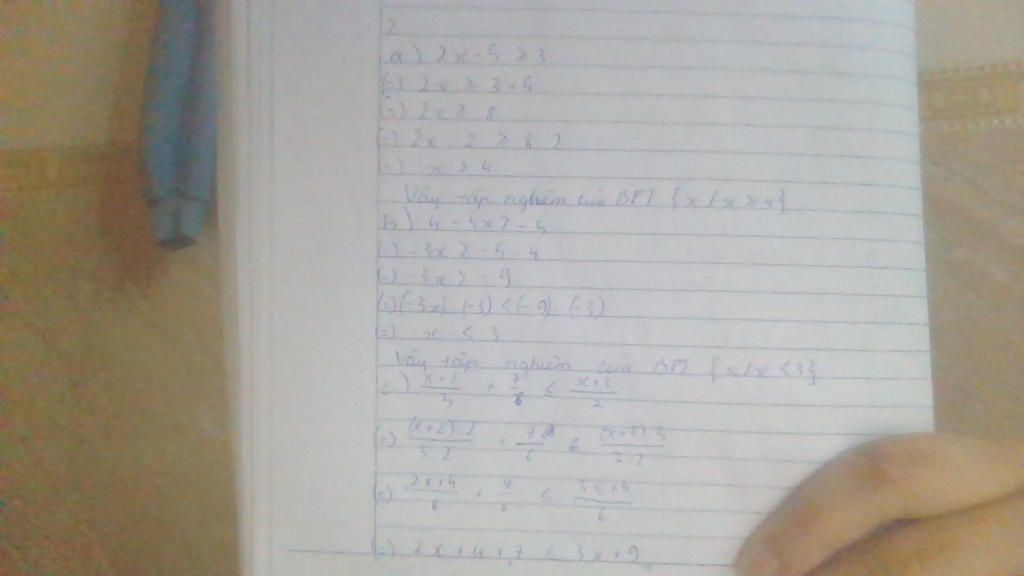 2
a) 2x - 5 ≥ 3
(=) 2x ≥ 3+5
(=) 2x ≥ 8
(=) 2x : 2 ≥ 8 : 2
(=) x ≥ 4
Vậy tập nghiệm của BPT {x / x ≥ 4}
b) 4 - 3x > - 5
(=) -3x > -5 -4
(=) -3x > -9
(=) (-3x) : (-3) < (-9) : (-3)
(=) x < 3
Vậy tập nghiệm của BPT {x / x < 3}
c) (x+2)/3 + 7/6 ≤ (x+3)/2
(=) (x+2).2/3.2 + 7/6 ≤ (x+3).3/3.2
(=) 2x+4/6 + 7/6 ≤ 3x+9/6
(=) 2x+4+7 ≤ 3x+9